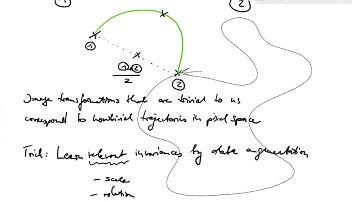 1
2
①
①+②
2
②
Image transformations that are trivial to us
correspond to nontrivial trajectories in pixel space
Trick: Learn relevant invariances by data augmentation
- scale
- rotation